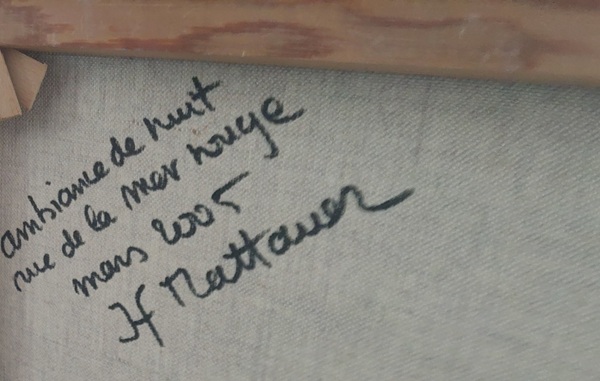 ambiance de nuit
vue de la mer rouge
mars 2005
Hf Mattauer